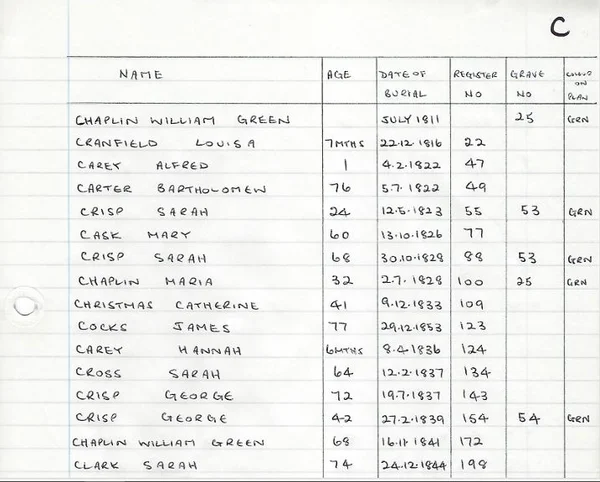 C
NAME AGE DATE OF BURIAL REGISTER NO GRAVE NO COLOUR ON PLAN
CHAPLIN WILLIAM GREEN JULY 1811 25 GRN
CRANFIELD LOUISA 7MTHS 22.12.1816 22
CAREY ALFRED 1 4.2.1822 47
CARTER BARTHOLOMEW 76 5.7.1822 49
CRISP SARAH 24 12.5.1823 55 53 GRN
CASK MARY 60 13.10.1826 77
CRISP SARAH 68 30.10.1828 88 53 GRN
CHAPLIN MARIA 32 2.7.1828 100 25 GRN
CHRISTMAS CATHERINE 41 9.12.1833 109
COCKS JAMES 77 29.12.1853 123
CAREY HANNAH 6MTHS 8.4.1836 124
CROSS SARAH 64 12.2.1837 134
CRISP GEORGE 72 19.7.1837 143
CRISP GEORGE 42 27.2.1839 154 54 GRN
CHAPLIN WILLIAM GREEN 68 16.11.1841 172
CLARK SARAH 74 24.12.1844 198